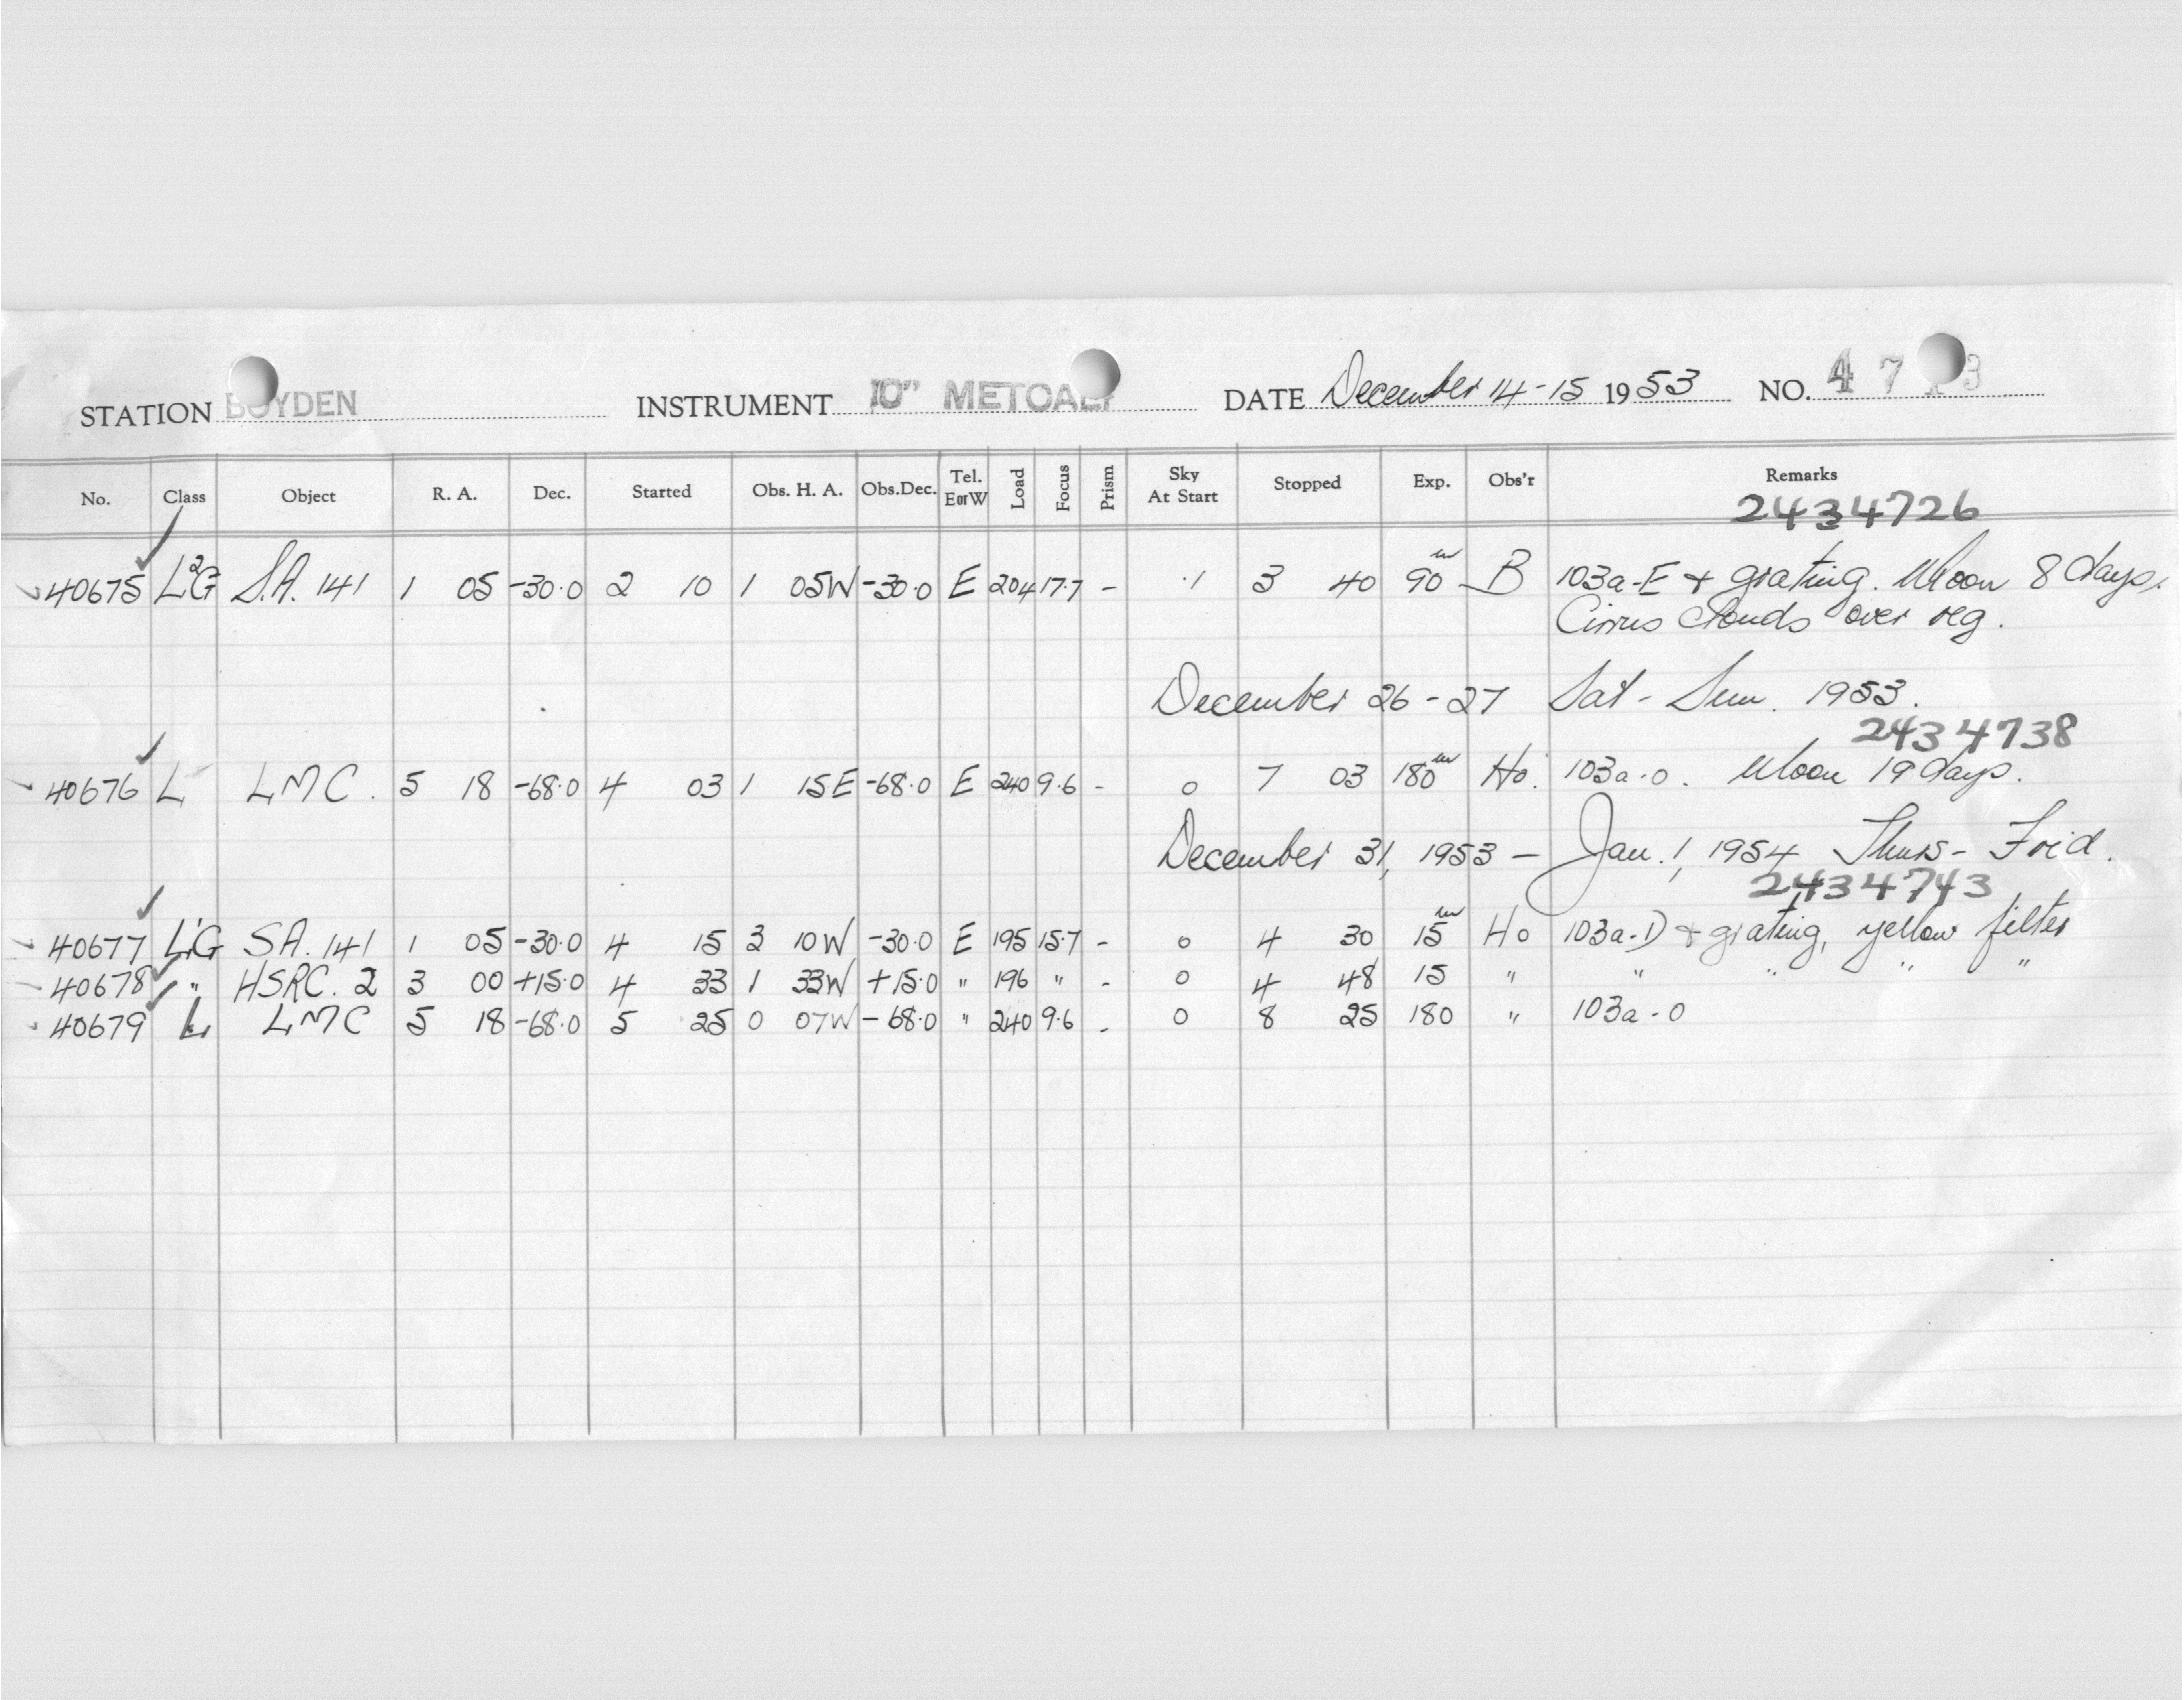 STATION BOYDEN INSTRUMENT 10" METCALF DATE December 14-15 1953 NO. 4 7 3
No. Class Object R. A. Dec. Started Obs. H. A. Obs.Dec. Tel. E or W Load Focus Prism Sky At Start Stopped Exp. Obs'r Remarks
2434726
40675 L2G S.A. 141 1 05 -30.0 2 10 1 05W -30.0 E 204 17.7 - .1 3 40 90m B 103a-E + grating. Moon 8 days.
Cirrus Clouds over reg.
December 26-27 Sat - Sun. 1953.
2434738
40676 L LMC. 5 18 -68.0 4 03 1 15E -68.0 E 240 9.6 - 0 7 03 180m Ho. 103a-0. Moon 19 days.
December 31, 1953 - Jan. 1, 1954 Thurs - Frid.
2434743
40677 L'G SA. 141 1 05 -30.0 4 15 3 10W -30.0 E 195 15.7 - 0 4 30 15m Ho 103a-D + grating, yellow filter
40678 " HSRC. 2 3 00 +15.0 4 33 1 33W +15.0 " 196 " - 0 4 48 15 " " " " "
40679 L LMC 5 18 -68.0 5 25 0 07W -68.0 " 240 9.6 - 0 8 25 180 " 103a-0